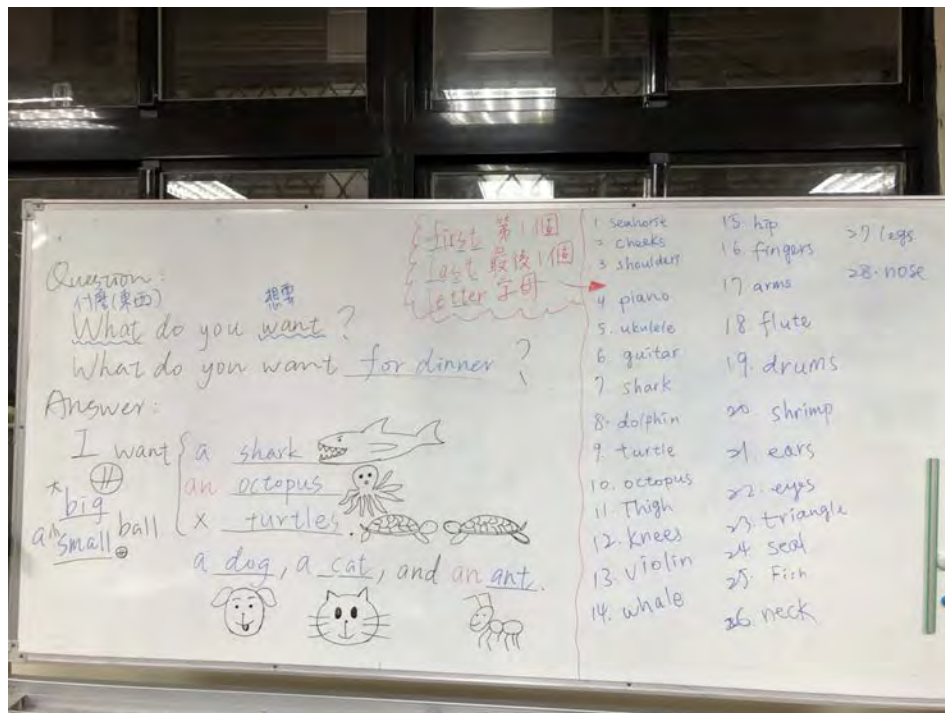 Question:
什麼(東西) 想要
What do you want ?
What do you want for dinner ?
Answer:
I want
a shark
an octopus
x turtles.
大
big
小
a small ball
a dog, a cat, and an ant.
first 第1個
last 最後1個
letter 字母
1. seahorse
2. cheeks
3. shoulders
4. piano
5. ukulele
6. guitar
7. shark
8. dolphin
9. turtle
10. octopus
11. Thigh
12. knees
13. violin
14. whale
15. hip
16. fingers
17. arms
18. flute
19. drums
20. shrimp
21. ears
22. eyes
23. triangle
24. seal
25. Fish
26. neck
27. legs
28. nose